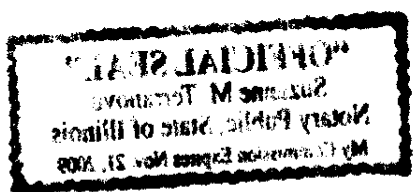 "OFFICIAL SEAL"
Suzanne M Terranova
Notary Public, State of Illinois
My Commission Expires Nov. 21, 2009